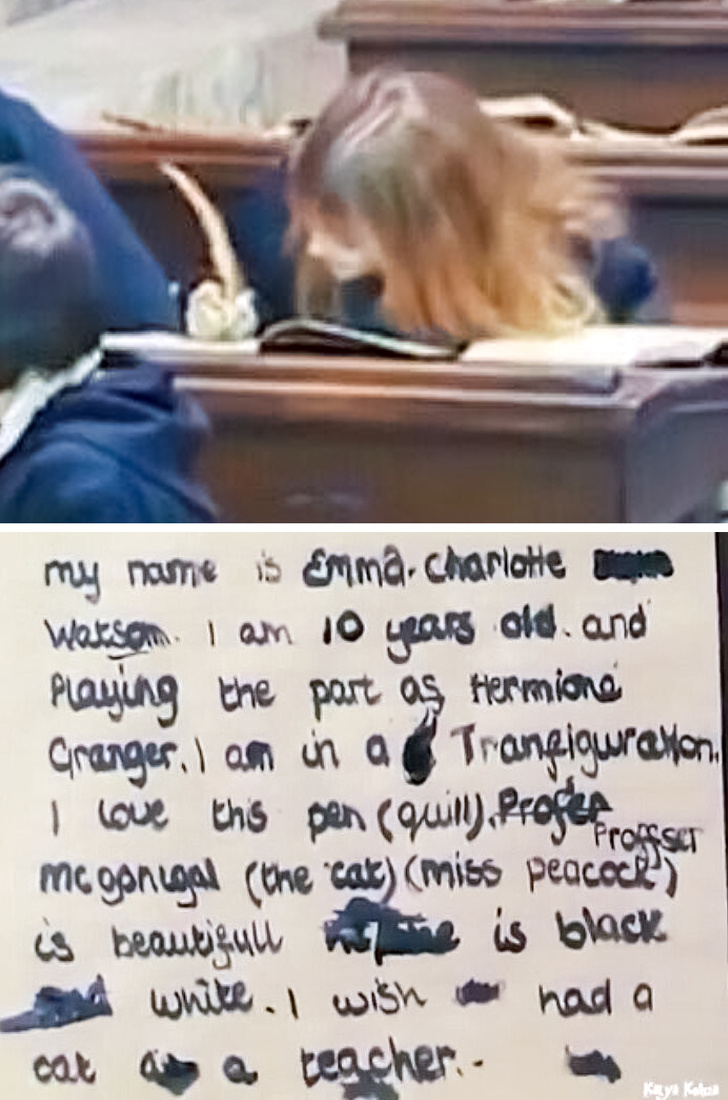 my name is Emma. Charlotte
Watson. I am 10 years old. and
Playing the part as Hermione
Granger. I am in a Tranfiguration.
I love this pen (quill). Profer
Proffser
mcgonigal (the cat) (miss peacock)
is beautifull is black
white. I wish had a
cat a teacher.-